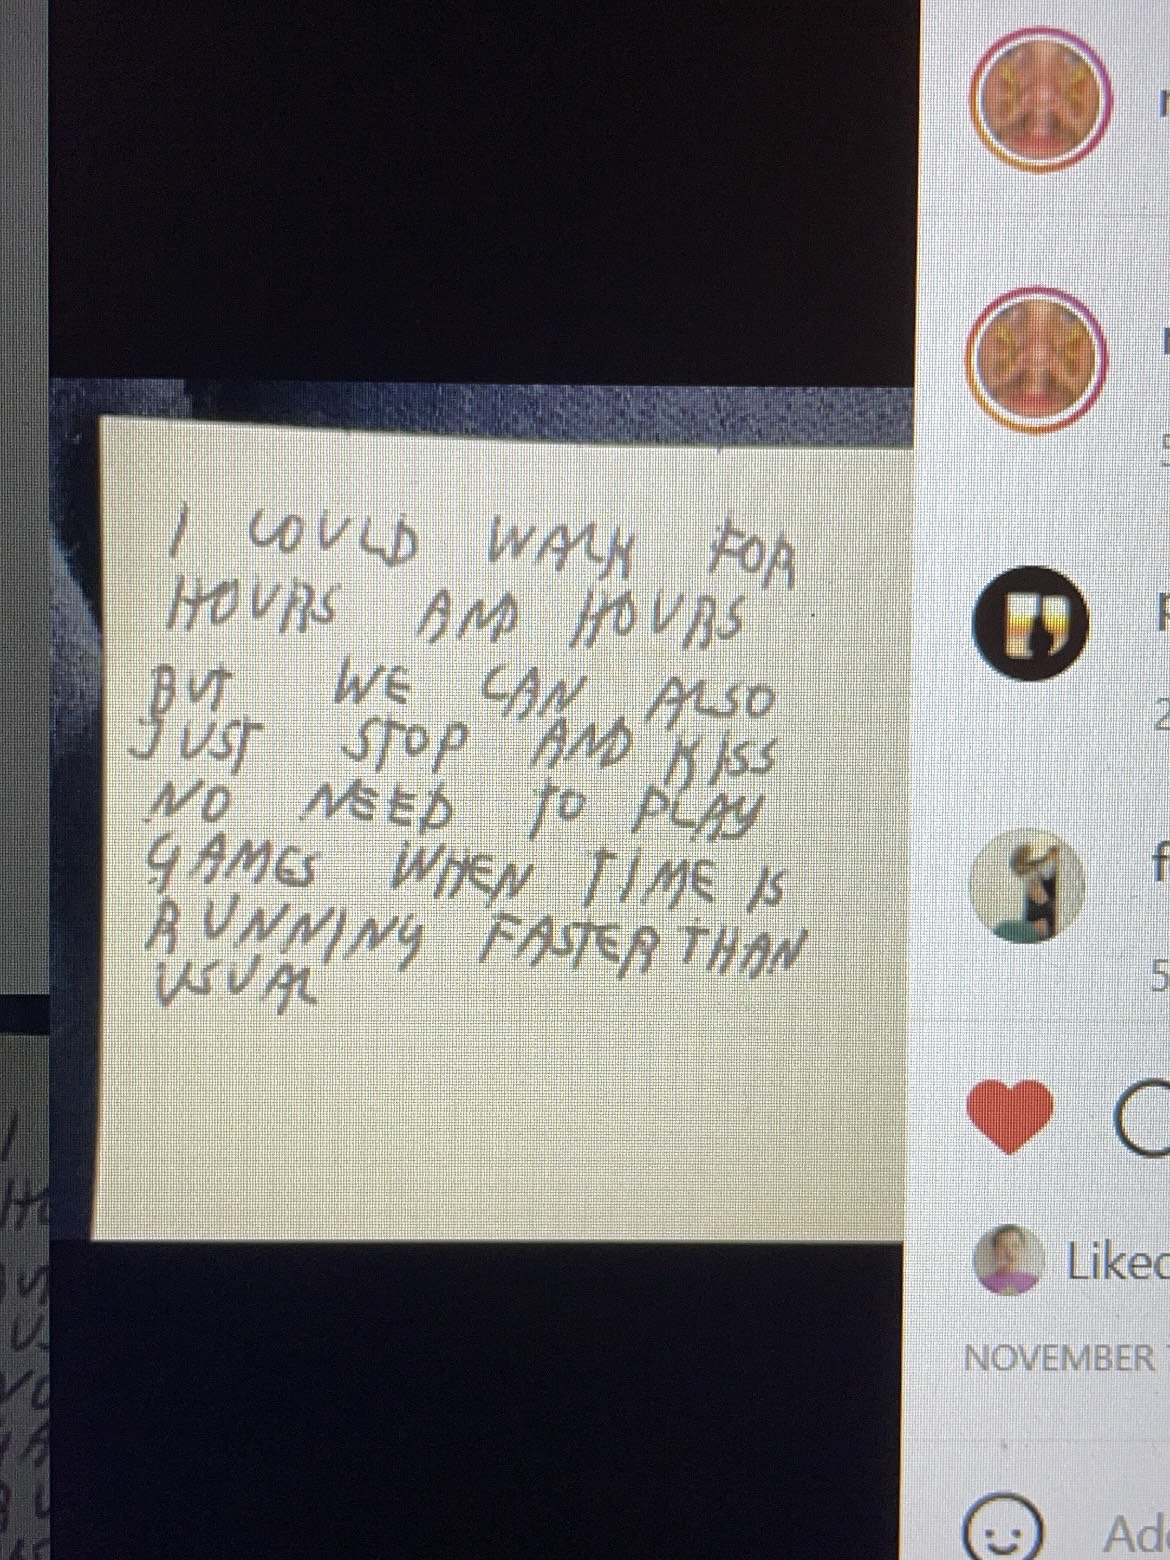 I COULD WALK FOR
HOURS AND HOURS
BUT WE CAN ALSO
JUST STOP AND KISS
NO NEED TO PLAY
GAMES WHEN TIME IS
RUNNING FASTER THAN
USUAL
5
2
f
5
Liked
NOVEMBER